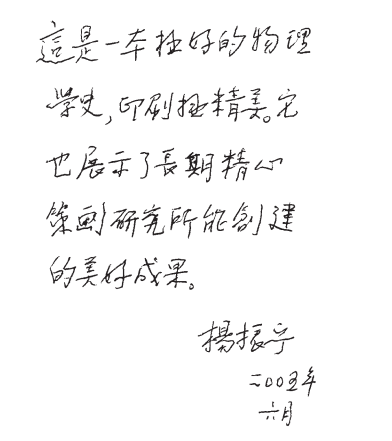 這是一本极好的物理
學史,印刷极精美。它
也展示了長期精心
策劃研究所能創建
的美好成果。
楊振宁
二〇〇五年
六月